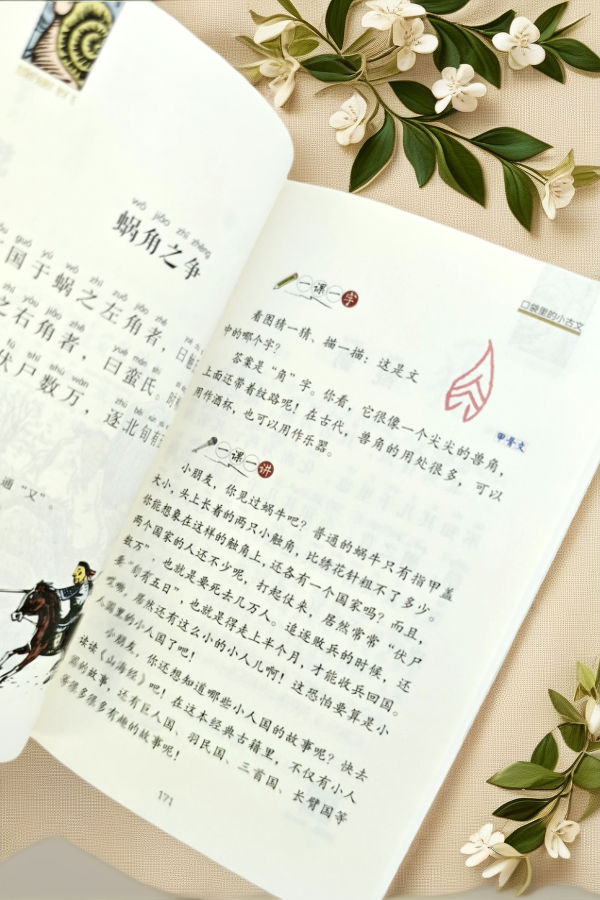 wō jiǎo zhī zhēng
蜗角之争
guó yú wō zhī zuǒ jiǎo zhě
国于蜗之左角者，曰
zhī yòu jiǎo zhě yuē mán shì
之右角者，曰蛮氏。时
fú shī shù wàn zhú běi
伏尸数万，逐北旬有
通“又”。
口袋里的小古文
一课一字
看图猜一猜、描一描：这是文
中的哪个字？
答案是“角”字。你看，它很像一个尖尖的兽角，
上面还带着纹路呢！在古代，兽角的用处很多，可以
用作酒杯，也可以用作乐器。
甲骨文
一课一讲
小朋友，你见过蜗牛吧？普通的蜗牛只有指甲盖
大小，头上长着的两只小触角，比绣花针粗不了多少。
你能想象在这样的触角上，还各有一个国家吗？而且，
两个国家的人还不少呢，打起仗来，居然常常“伏尸
数万”，也就是要死去几万人。追逐败兵的时候，还
要“旬有五日”，也就是得走上半个月，才能收兵回国。
哎哟，居然还有这么小的小人儿啊！这恐怕要算是小
人国里的小人国了吧！
小朋友，你还想知道哪些小人国的故事呢？快去
读读《山海经》吧！在这本经典古籍里，不仅有小人
国的故事，还有巨人国、羽民国、三首国、长臂国等
等很多很多有趣的故事呢！
171